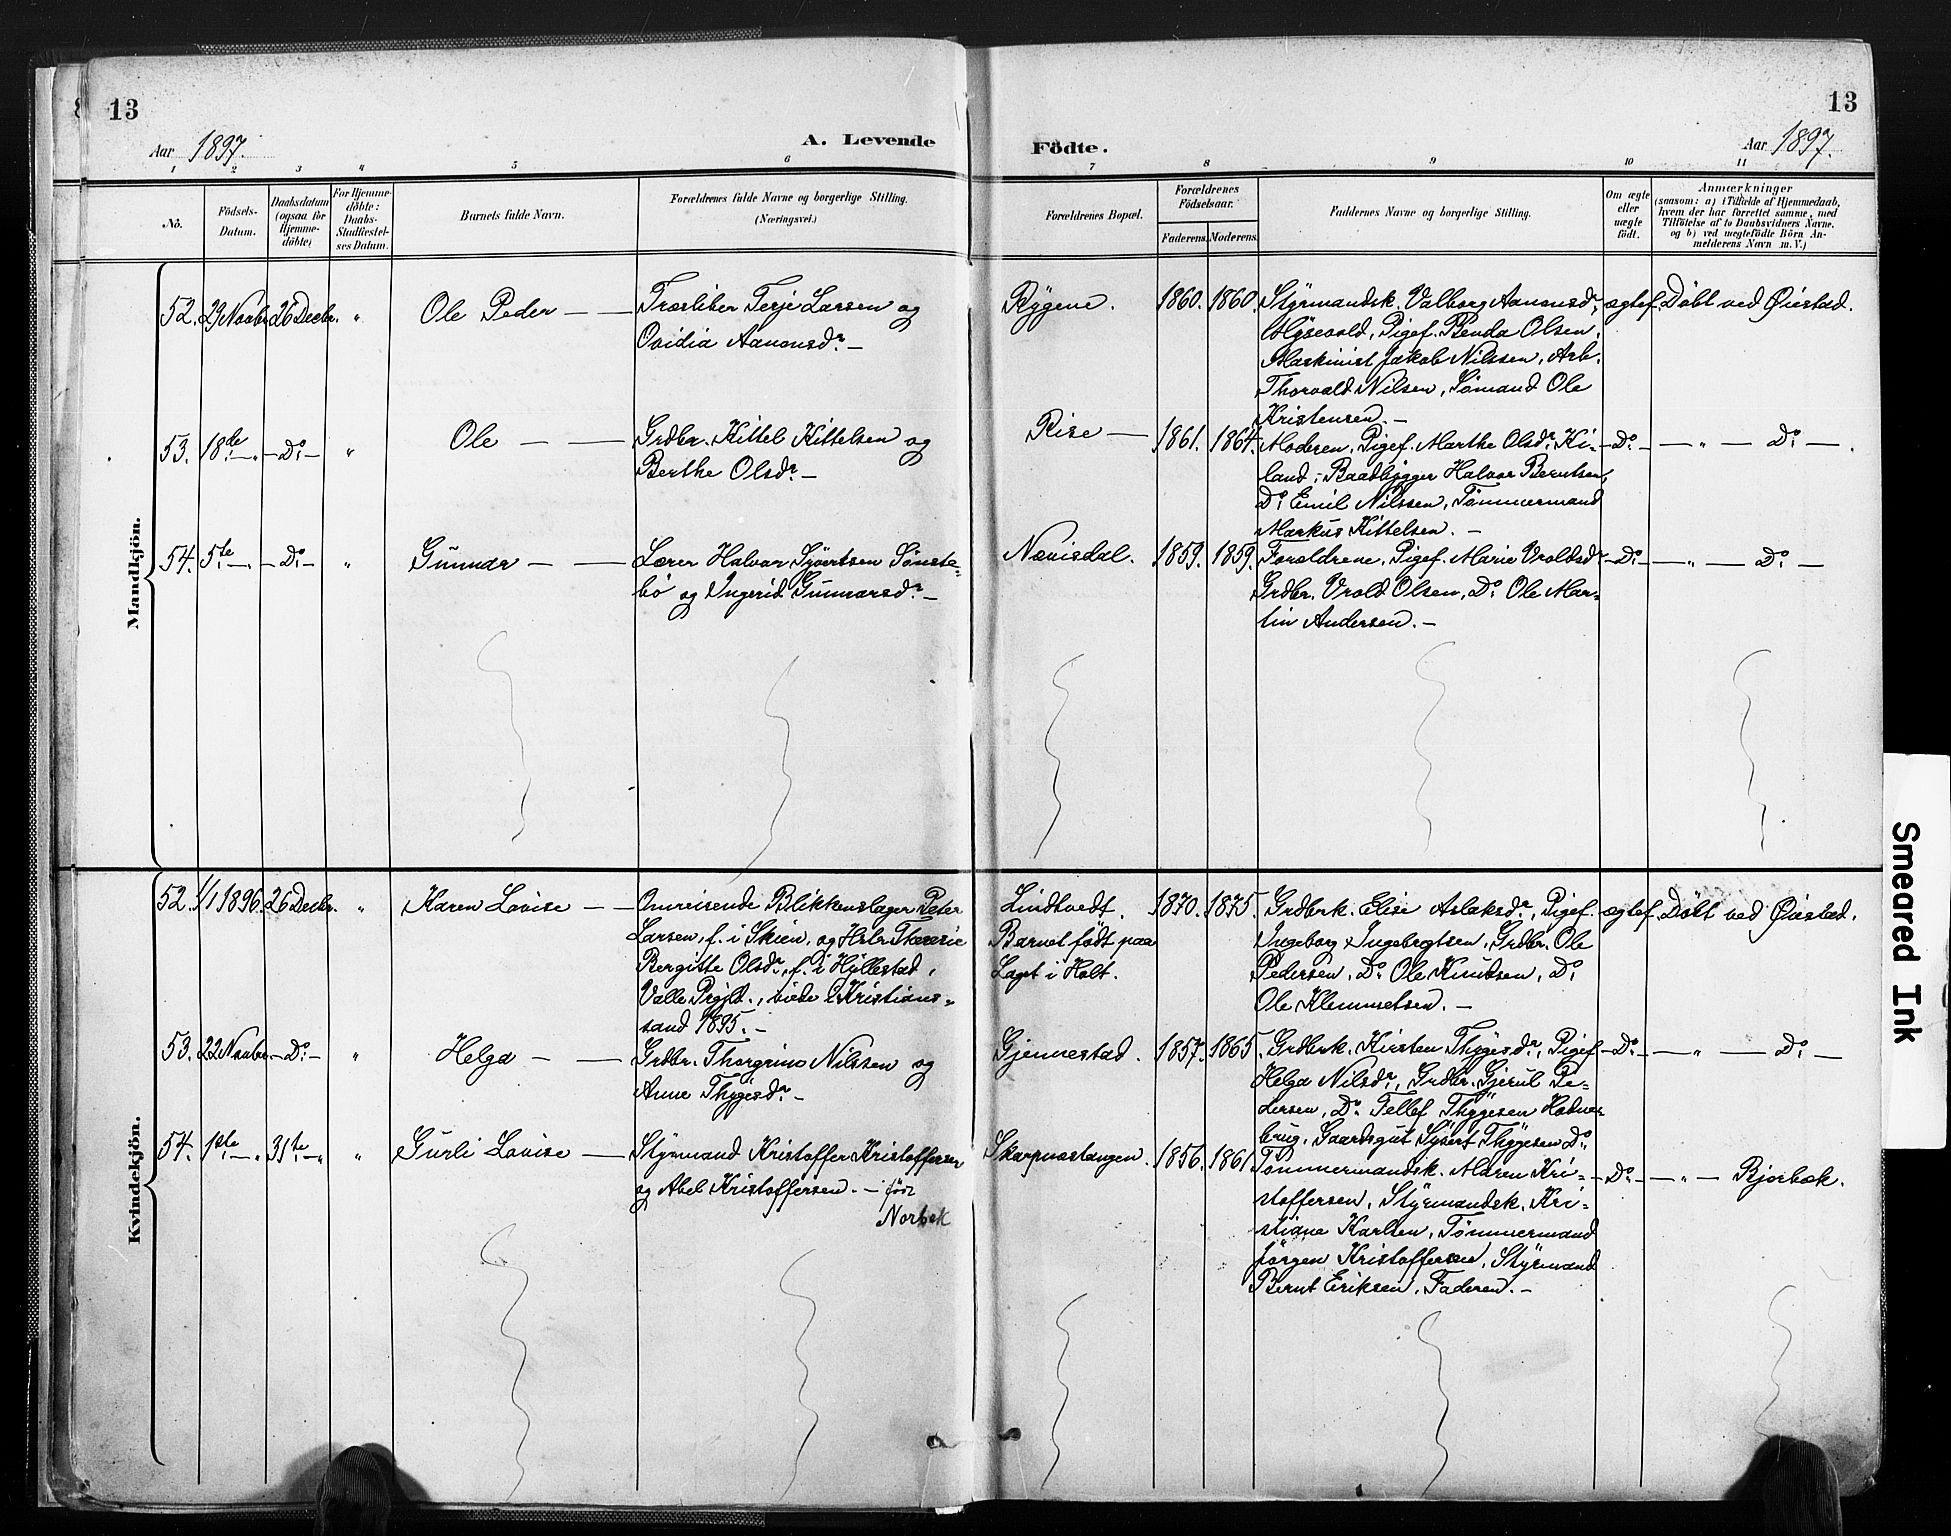 8 13
13
Aar 1897.
A. Levende
Fødte.
Aar 1897.
1 2 3 " 5 6 7 8 9 10 11
No.
Fødsels-
Datum.
Daabsdatum
(ogsaa for
Hjemme-
døbte)
For Hjemme-
døbte:
Daabs-
Stadfæstel-
ses Datum.
Barnets fulde Navn.
Forældrenes fulde Navne og borgerlige Stilling.
(Næringsvei.)
Forældrenes Bopæl.
Forældrenes
Fødselsaar.
Faderens. Moderens.
Faddernes Navne og borgerlige Stilling.
Om ægte
eller
uægte
født.
Anmærkninger
(saasom: a) i Tilfælde af Hjemmedaab,
hvem der har forrettet samme, med
Tilføielse af to Daabsvidners Navne.
og b) ved uægtefødte Børn An-
melderens Navn m. V.)
Mandkjøn.
52. 29 Novbr. 26 Decbr. " Ole Peder —
Træsliber Terje Larsen og
Ovidia Aanonsdr. —
Rygene. 1860. 1860.
Styrmandsk. Valborg Aanonsdr.,
Pigef. Benda Olsen,
Maskinist Jakob Nilssen, Arb.
Thorvald Nilsen, Sømand Ole
Kristensen. —
ægtef. Døbt ved Øiestad.
53. 18de — " — Do. — " Ole — —
Grdbr. Kittel Kittelsen og
Berthe Olsdr. —
Rise — 1861. 1864.
Moderen, Pigef. Marthe Olsdr. Ki-
land, Baadbygger Halvor Berntsen,
Do. Emil Nilssen, Tømmermand
Markus Kittelsen. —
— Do. — — " — Do. —
54. 5te — " — Do. — " Gunnar — —
Lærer Halvor Syvertsen Sønste-
bø og Ingerid Gunnarsdr. —
Nævisdal. 1859. 1859.
Forældrene, Pigef. Marie Vroldsdr.
Grdbr. Vrold Olsen, Do. Ole Mar-
tin Andersen. —
— Do. — — " — Do. —
Kvindekjøn.
52. 1/1 1896. 26 Decbr. " Karen Lovise — —
Omreisende Blikkenslager Peter
Larsen, f. i Skien, og Hstr. Theresie
Bergitte Olsdr., f. i Hyllestad,
Valle Prgjld., viede i Kristians-
sand 1895. —
Lindtvedt.
Barnet født paa
Laget i Holt.
1870. 1875.
Grdbrk. Elise Aslaksdr., Pigef.
Ingeborg Ingebregtsen, Grdbr. Ole
Pedersen, Do. Ole Knudsen, Do.
Ole Klemmetsen. —
ægtef. Døbt ved Øiestad.
53. 22 Novbr. — Do. — " Helga — —
Grdbr. Thorgrim Nilssen og
Anne Thygesdr. —
Gjennestad. 1857. 1865.
Grdbrk. Kirsten Thygesdr., Pigef.
Helga Nilsdr., Grdbr. Gjerul Pe-
dersen, Do. Tellef Thygesen Hodne-
brug, Gaardsgut Syvert Thygesen Do.
— Do. — — " — Do. —
54. 1ste — " 31te — " " Gurli Lovise —
Styrmand Kristoffer Kristoffersen
og Abel Kristoffersen. — født
Norbek
Skarpnestangen. 1856. 1861.
Tømmermandsk. Maren Kri-
stoffersen, Styrmandsk. Kri-
stiane Karlsen, Tømmermand
Jørgen Kristoffersen, Styrmand
Bernt Eriksen, Faderen. —
— Do. — — " — Bjorbæk.
Smeared Ink